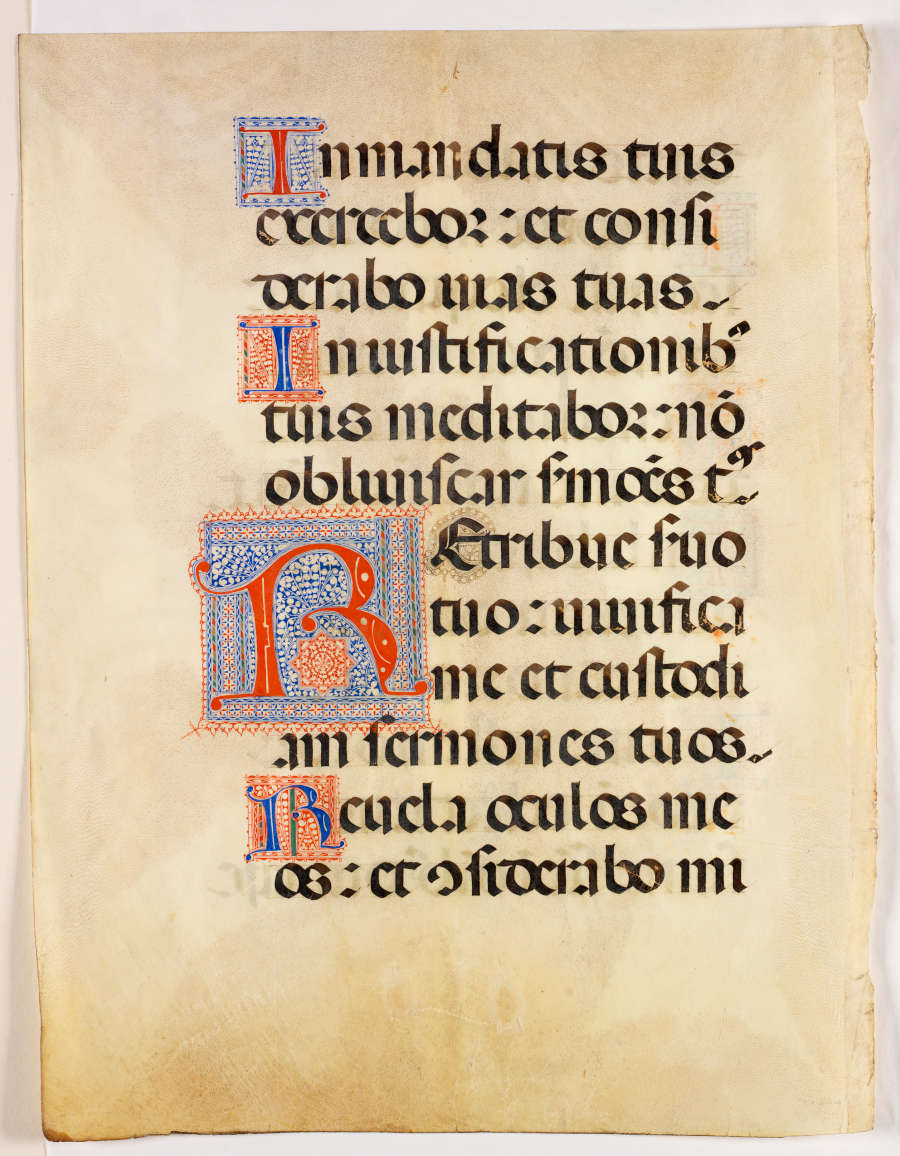 In mandatis tuis
exercebor : et consi
derabo uias tuas.
In iustificationib⁹
tuis meditabor : nō
obliuiscar s̄mōēs t⁹.
REtribue s̄uo
tuo : uiuifica
me et custodi
am sermones tuos.
Reuela oculos me
os : et ꝯsiderabo mi